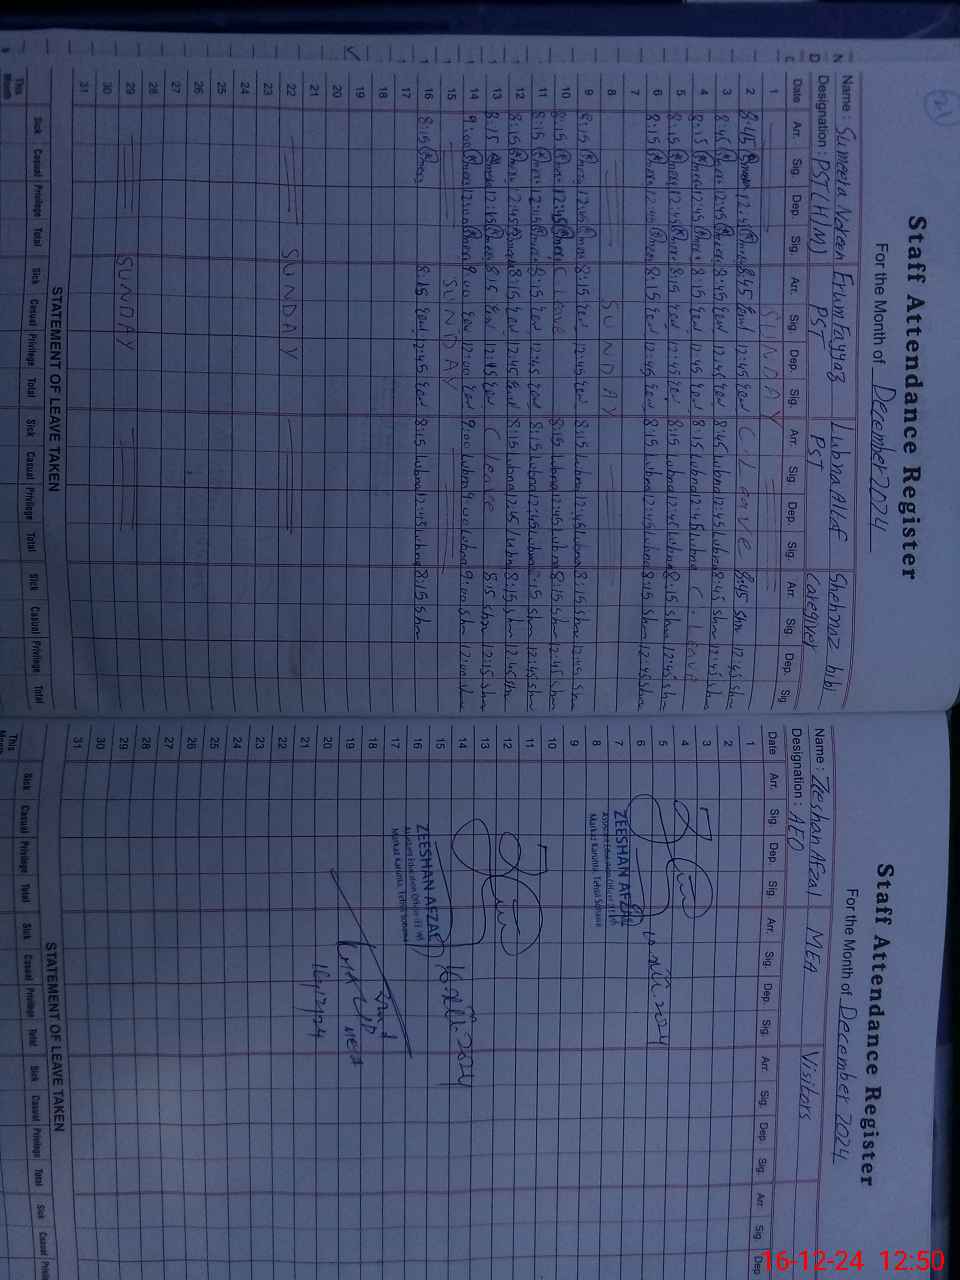 21
Staff Attendance Register
For the Month of December 2024
Name : Sumeera Noreen Erum Fayyaz Lubna Altaf Shehnaz bibi
Designation : PST(H/M) PST PST Caregiver
Date Arr. Sig. Dep. Sig. Arr. Sig. Dep. Sig. Arr. Sig. Dep. Sig. Arr. Sig. Dep. Sig
1 SUNDAY
2 8:45 12:45 8:45 12:45 C. Leave 8:45 Shn 12:45 Shn
3 8:45 12:45 8:45 12:45 8:45 Lubna 12:45 Lubna 8:45 Shn 12:45 Shn
4 8:15 12:45 8:15 12:45 8:15 Lubna 12:45 Lubna C. Leave
5 8:15 12:45 8:15 12:45 8:15 Lubna 12:45 Lubna 8:15 Shn 12:45 Shn
6 8:15 12:45 8:15 12:45 8:15 Lubna 12:45 Lubna 8:15 Shn 12:45 Shn
7
8 SUNDAY
9 8:15 12:45 8:15 12:45 8:15 Lubna 12:45 Lubna 8:15 Shn 12:45 Shn
10 8:15 12:45 C. Leave 8:15 Lubna 12:45 Lubna 8:15 Shn 12:45 Shn
11 8:15 12:45 8:15 12:45 8:15 Lubna 12:45 Lubna 8:15 Shn 12:45 Shn
12 8:15 12:45 8:15 12:45 8:15 Lubna 12:45 Lubna 8:15 Shn 12:45 Shn
13 8:15 12:45 8:15 12:45 C Leave 8:15 Shn 12:15 Shn
14 9:00 12:00 9:00 12:00 9:00 Lubna 9:00 Lubna 9:00 Shn 12:00 Shn
15 SUNDAY
16 8:15 8:15 12:45 8:15 Lubna 12:45 Lubna 8:15 Shn
17
18
19
20
21
22 SUNDAY
23
24
25
26
27
28
29 SUNDAY
30
31
STATEMENT OF LEAVE TAKEN
Sick Casual Privilege Total Sick Casual Privilege Total Sick Casual Privilege Total Sick Casual Privilege Total
This Month
Staff Attendance Register
For the Month of December 2024
Name : Zeeshan Afzal MEA Visitors
Designation : AEO
Date Arr. Sig. Dep. Sig. Arr. Sig. Dep. Sig. Arr. Sig. Dep. Sig. Arr Sig. Dep
1
2
3
4
5
6
7
8
ZEESHAN AFZAL
Assistant Education Officer
9
10
11
12
13
14
15
16
16-XII-2024
ZEESHAN AFZAL
Assistant Education Officer
17
18
19
20
MEA
16/12/24
21
22
23
24
25
26
27
28
29
30
31
STATEMENT OF LEAVE TAKEN
Sick Casual Privilege Total Sick Casual Privilege Total Sick Casual Privilege Total Sick Casual
This
16-12-24 12:50